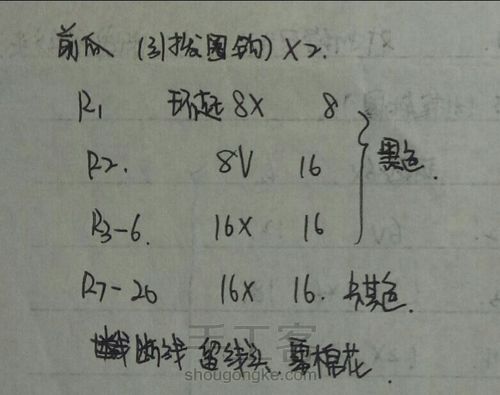 前爪 (引拔圈钩) X2.
R1 环起 8X 8
R2. 8V 16
R3-6. 16X 16
黑色.
R7-20 16X 16. 卡其色.
断线 留线头. 塞棉花.
手工客
shougongke.com